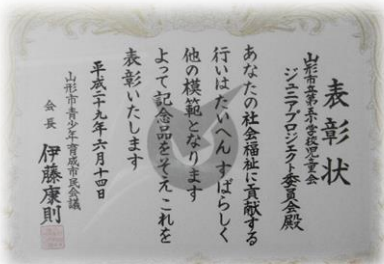 表彰状
山形市立第五小学校児童会
ジュニアプロジェクト委員会殿
あなたの社会福祉に貢献する
行いはたいへんすばらしく
他の模範となります
よって記念品をそえこれを
表彰いたします
平成二十九年六月十四日
山形市青少年育成市民会議
会長 伊藤康則